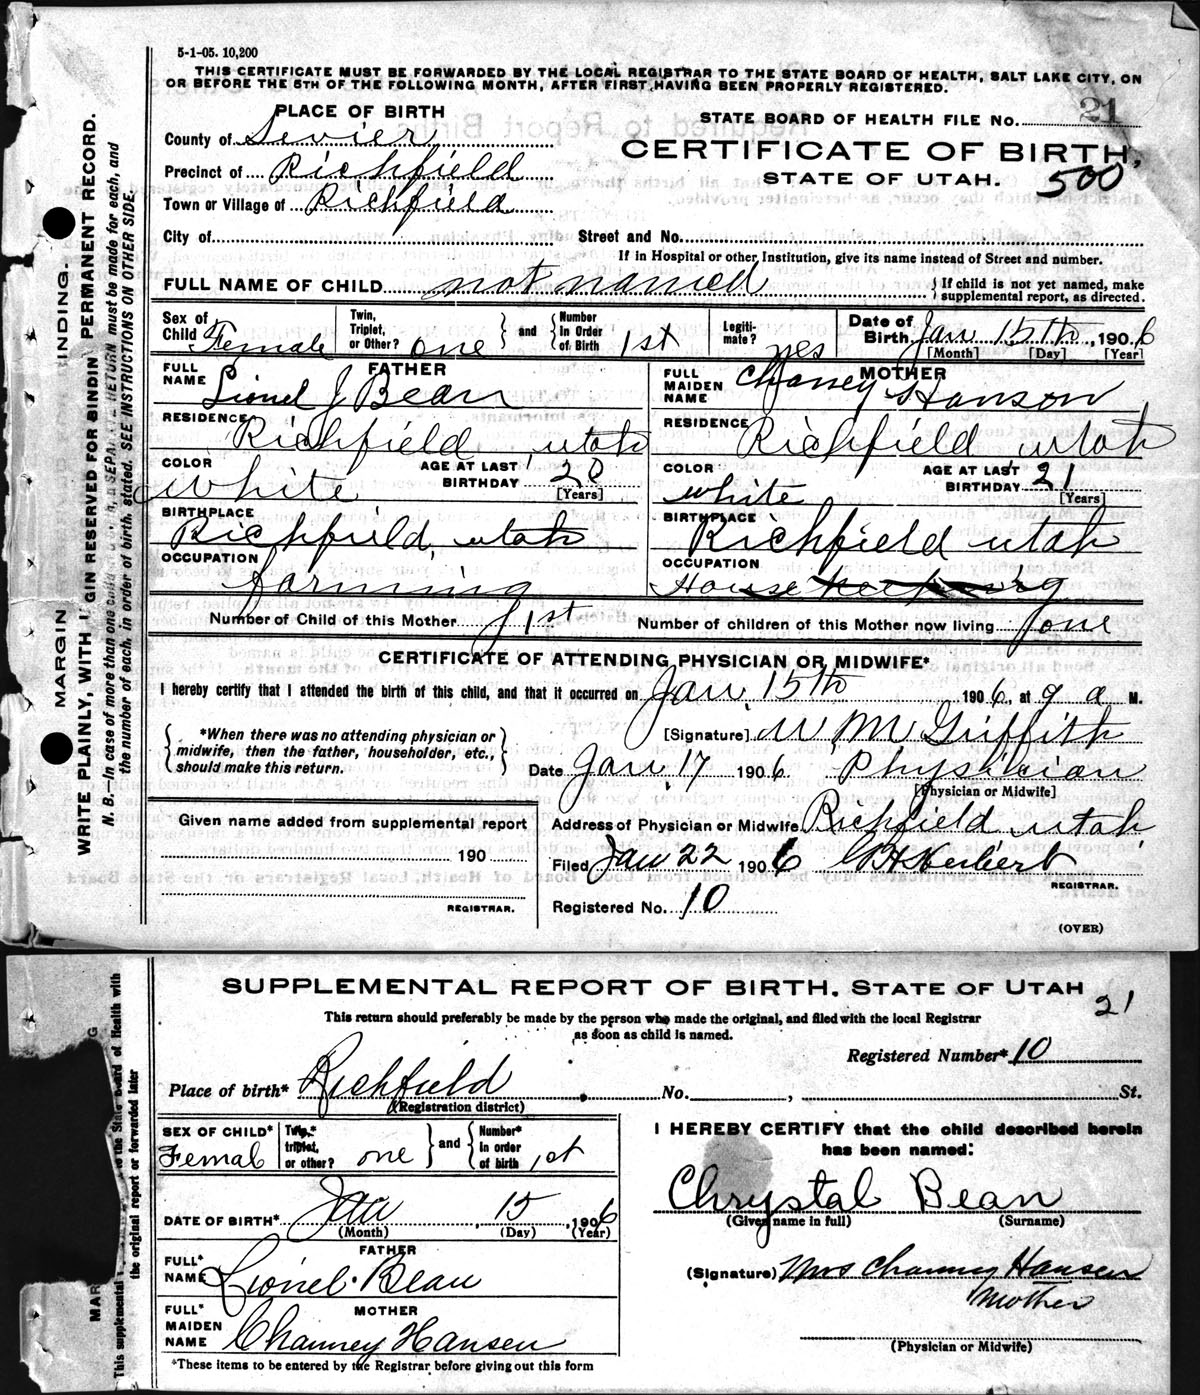 5-1-05. 10,200
THIS CERTIFICATE MUST BE FORWARDED BY THE LOCAL REGISTRAR TO THE STATE BOARD OF HEALTH, SALT LAKE CITY, ON
OR BEFORE THE 5TH OF THE FOLLOWING MONTH, AFTER FIRST HAVING BEEN PROPERLY REGISTERED.
PLACE OF BIRTH
County of Sevier
Precinct of Richfield
Town or Village of Richfield
City of
STATE BOARD OF HEALTH FILE NO. 21
CERTIFICATE OF BIRTH,
STATE OF UTAH. 500
Street and No.
If in Hospital or other Institution, give its name instead of Street and number.
FULL NAME OF CHILD not named
If child is not yet named, make
supplemental report, as directed.
Sex of
Child Female
Twin,
Triplet,
or Other? one
and
Number
in Order
of Birth 1st
Legiti-
mate? yes
Date of
Birth Jan 15th, 1906
[Month] [Day] [Year]
FATHER
FULL
NAME Lionel J Bean
RESIDENCE
Richfield, utah
COLOR
White
AGE AT LAST
BIRTHDAY
[Years]
BIRTHPLACE
Richfield, utah
OCCUPATION
farming
MOTHER
FULL
MAIDEN
NAME Hanson
RESIDENCE
Richfield, utah
COLOR
white
AGE AT LAST
BIRTHDAY 21
[Years]
BIRTHPLACE
Richfield utah
OCCUPATION
House
Number of Child of this Mother 1st
Number of children of this Mother now living one
CERTIFICATE OF ATTENDING PHYSICIAN OR MIDWIFE*
I hereby certify that I attended the birth of this child, and that it occurred on Jan. 15th 1906, at 9 a M.
*When there was no attending physician or
midwife, then the father, householder, etc.,
should make this return.
[Signature] W M Griffith
Date Jan. 17 1906 Physician
[Physician or Midwife]
Given name added from supplemental report
190
REGISTRAR.
Address of Physician or Midwife Richfield utah
Filed Jan 22 1906 Herbert
REGISTRAR.
Registered No. 10
(OVER)
MARGIN INDING.
WRITE PLAINLY, WITH GIN RESERVED FOR BINDIN PERMANENT RECORD.
N. B.—In case of more than one RETURN must be made for each, and
the number of each, in order of birth, stated. SEE INSTRUCTIONS ON OTHER SIDE.
SUPPLEMENTAL REPORT OF BIRTH, STATE OF UTAH 21
This return should preferably be made by the person who made the original, and filed with the local Registrar
as soon as child is named.
Registered Number* 10
Place of birth* Richfield No. , St.
(Registration district)
SEX OF CHILD*
Femal
Twin,*
triplet,
or other? one
and
Number*
in order
of birth 1st
DATE OF BIRTH* Jan 15, 1906
(Month) (Day) (Year)
FATHER
FULL*
NAME Lionel Bean
MOTHER
FULL*
MAIDEN
NAME Chauncy Hansen
*These items to be entered by the Registrar before giving out this form
I HEREBY CERTIFY that the child described herein
has been named:
Chrystal Bean
(Given name in full) (Surname)
(Signature) Mrs Chauncy Hansen
Mother
(Physician or Midwife)
MAR G
This supplemental to the State Board of Health with
the original report or forwarded later